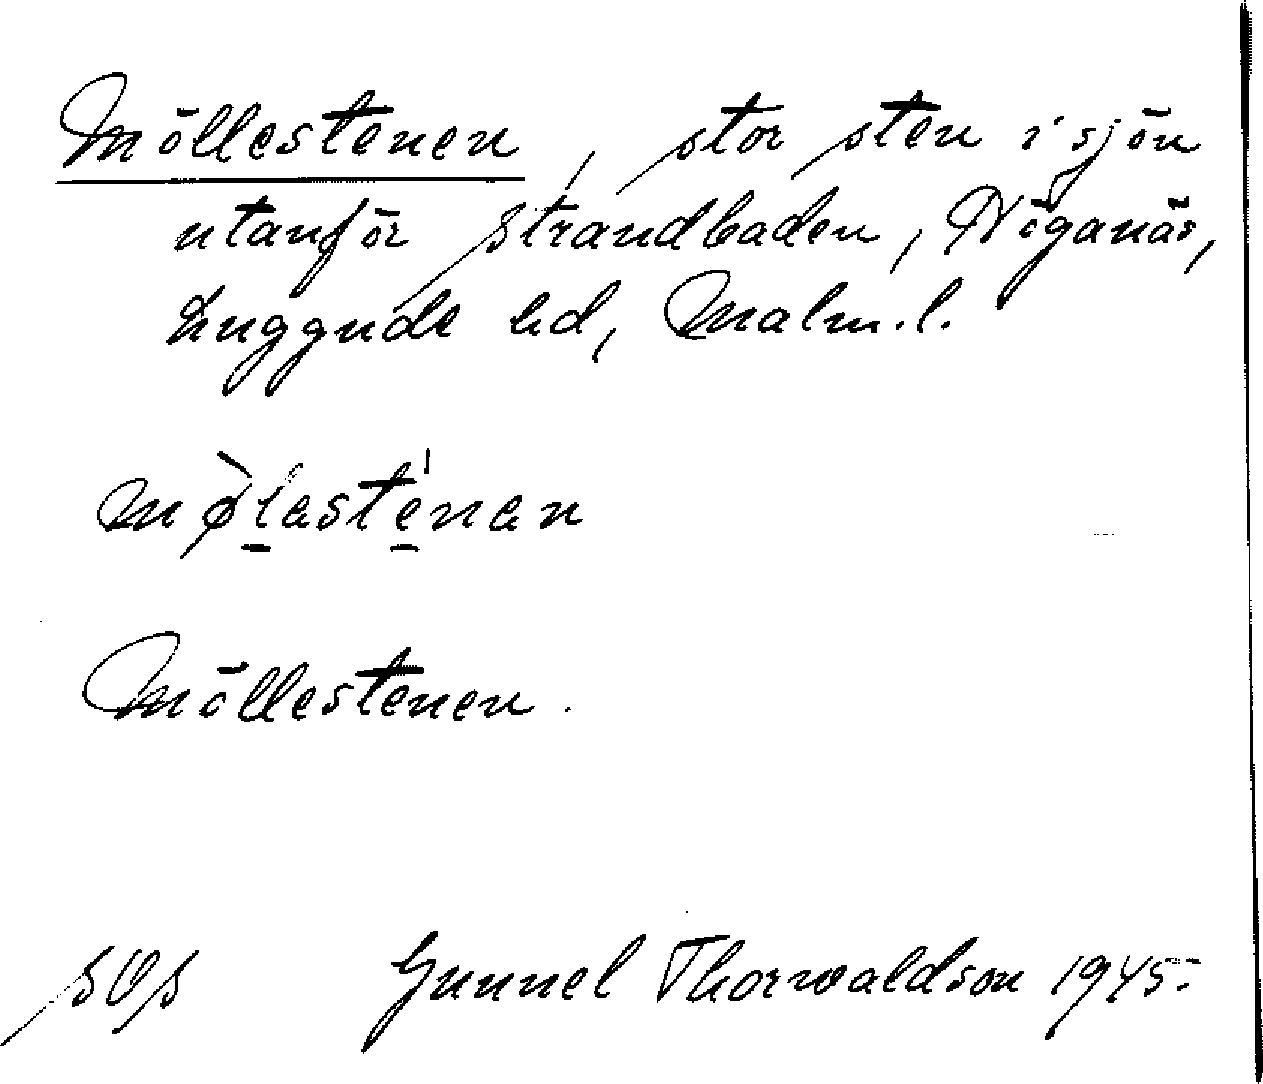 Möllestenen, stor sten i sjön
utanför Strandbaden, Höganäs,
Luggude hd, Malm.l.
mø̀lasténan
Möllestenen.
Gunnel Thorwaldson 1945.